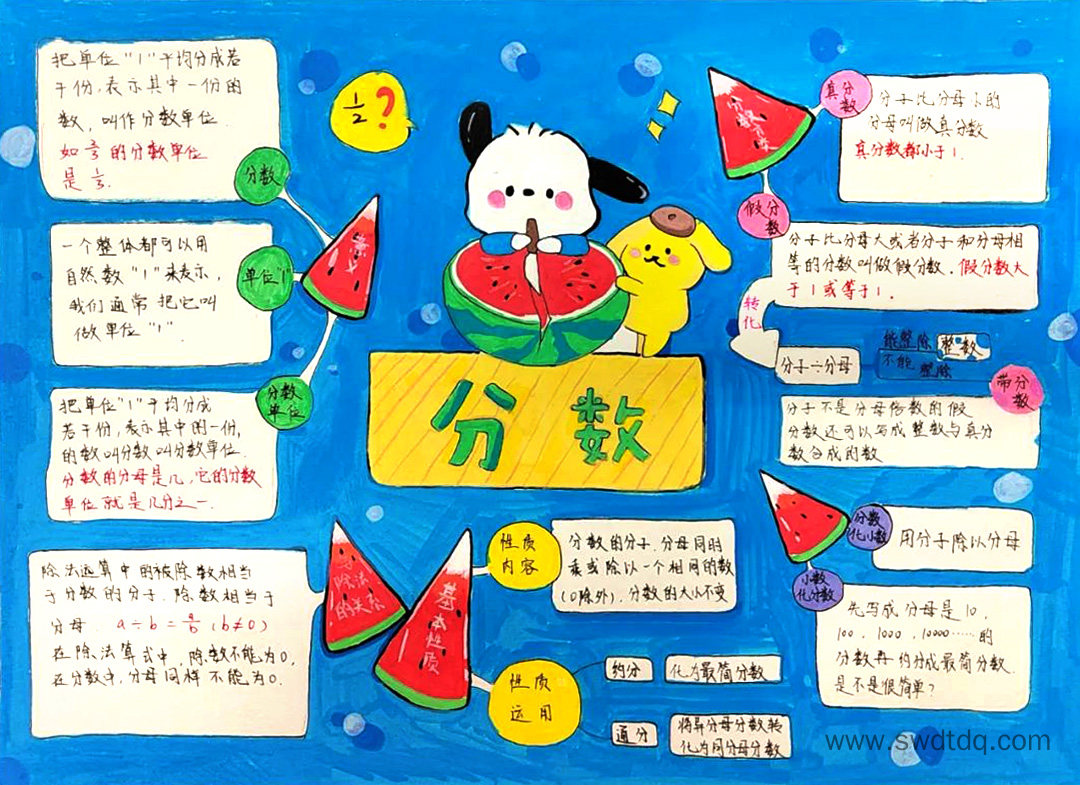 把单位"1"平均分成若
干份,表示其中一份的
数,叫作分数单位.
如
的分数单位
是
分数
一个整体都可以用
自然数"1"来表示,
我们通常把它叫
做单位"1".
单位"1"
把单位"1"平均分成
若干份,表示其中的一份,
的数叫分数叫分数单位.
分数的分母是几,它的分数
单位就是几分之一.
分数
单位
意义
1/2 ?
分数
真分
数
分子比分母小的
分母叫做真分数
真分数都小于1.
假分
数
分子比分母大或者分子和分母相
等的分数叫做假分数.假分数大
于1或等于1.
转
化
分子÷分母
能整除
整数
不能
整除
带分
数
分子不是分母倍数的假
分数还可以写成整数与真分
数合成的数
分数
化小数
用分子除以分母
小数
化分数
先写成分母是10,
100,1000,10000……的
分数再约分成最简分数.
是不是很简单?
除法运算中的被除数相当
于分数的分子.除数相当于
分母. a÷b=a/b(b≠0)
在除法算式中,除数不能为0.
在分数中,分母同样不能为0.
与
除法
的关系
基
本
性
质
性质
内容
分数的分子.分母同时
乘或除以一个相同的数
(0除外).分数的大小不变
性质
运用
约分
化为最简分数
通分
将异分母分数转
化为同分母分数
www.swdtdq.com